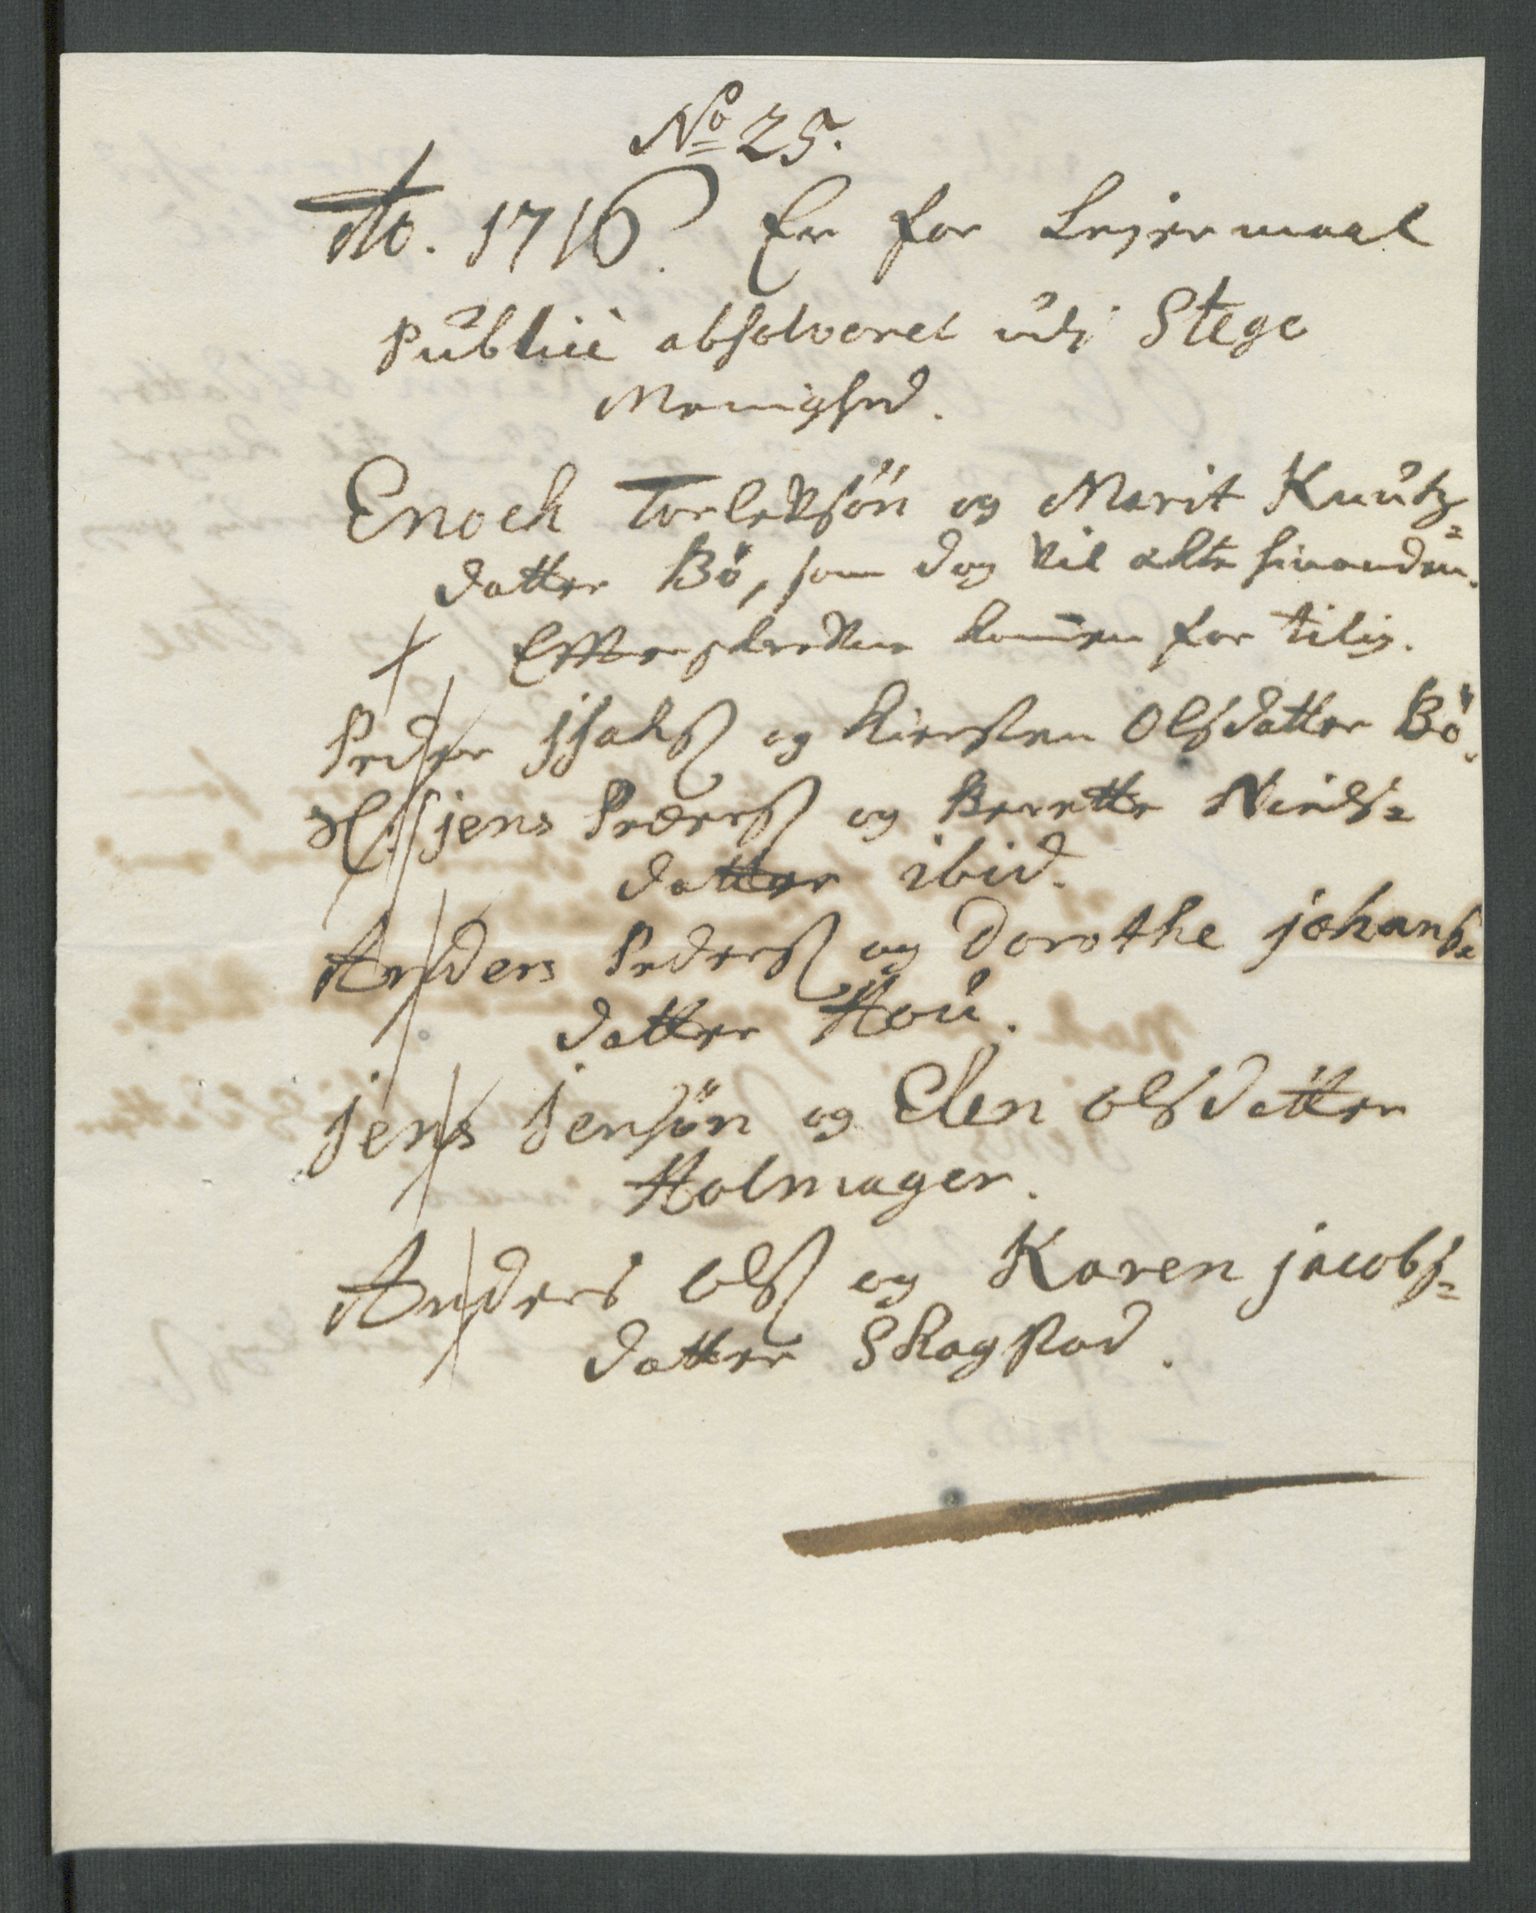 No 25.
Ao. 1716. Er for Lejermaal
Publicè absolveret udj Stege
Menighed.
Enoch Torleksön og Marit Knutz=
datter Bö, som dog vil ekte hinanden.
+ Efterskrevne komen for tilig.
Peder Jsaks og Kiersten Olsdatter Bö.
Jens Peders og Berette Niels=
datter ibid.
Anders Peders og Dorothe johans=
datter Hou.
jens jensön og Elen Olsdatter
Holmager.
Anders Ols og Karen jacobs=
datter Skogstad.